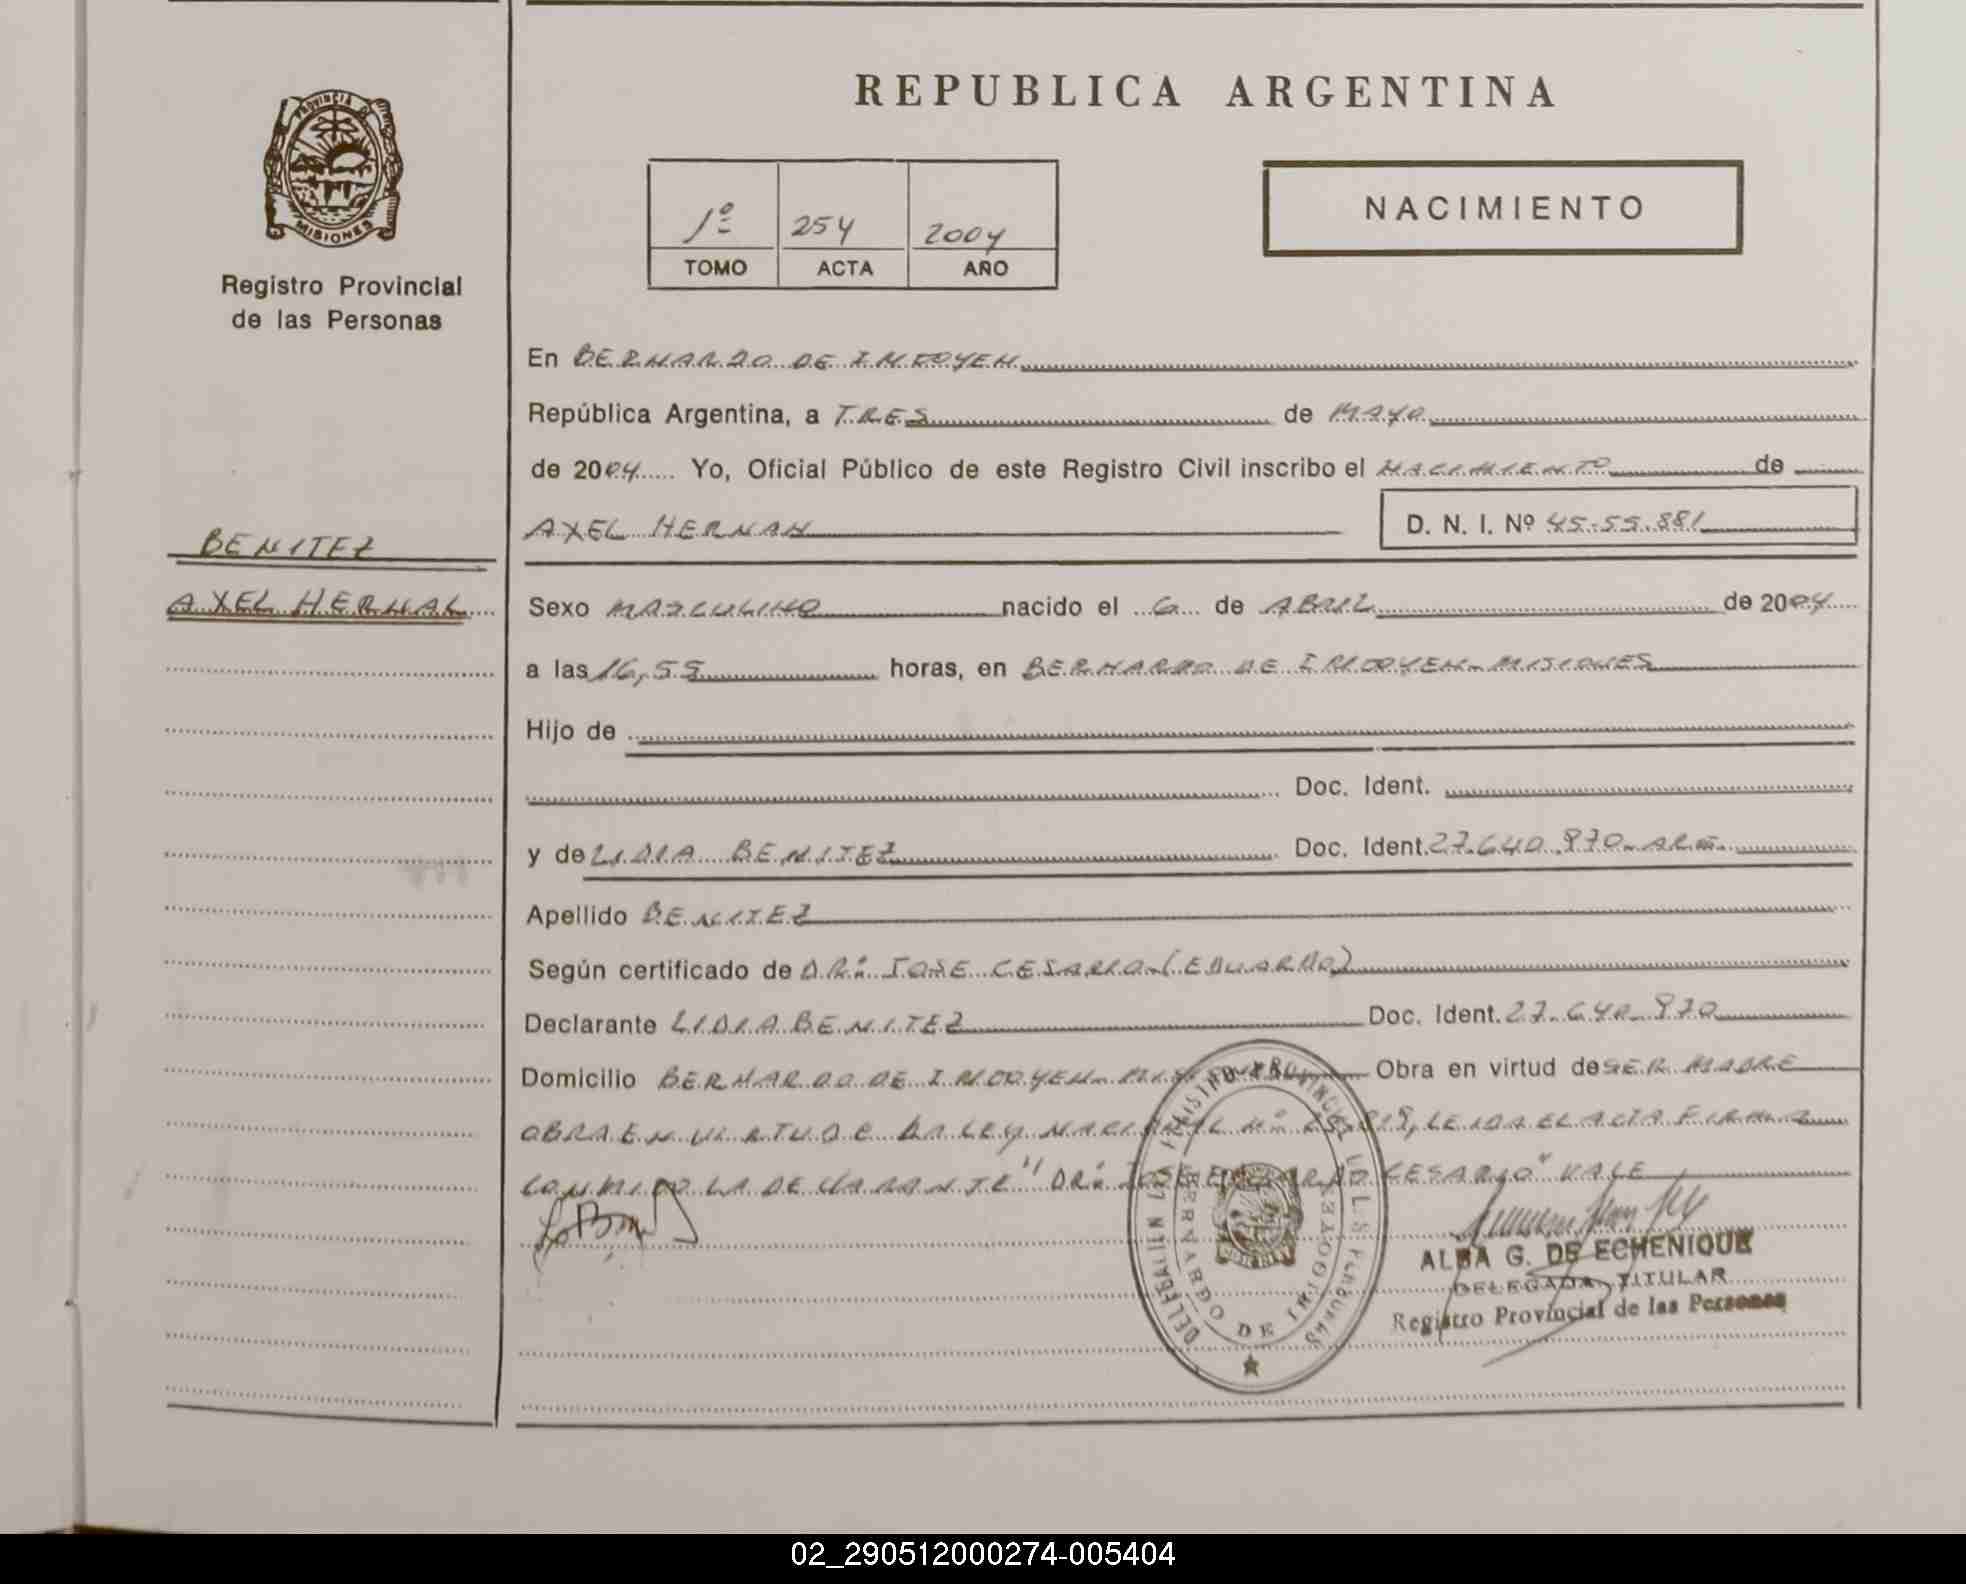 PROVINCIA DE
MISIONES
Registro Provincial
de las Personas
BENITEZ
AXEL HERNAN
REPUBLICA ARGENTINA
1º 254 2004
TOMO ACTA AÑO
NACIMIENTO
En BERNARDO DE IRIGOYEN
República Argentina, a TRES de MAYO
de 2004 Yo, Oficial Público de este Registro Civil inscribo el NACIMIENTO de
AXEL HERNAN D. N. I. Nº 45.55.881
Sexo MASCULINO nacido el 6 de ABRIL de 2004
a las 16,55 horas, en BERNARDO DE IRIGOYEN - MISIONES
Hijo de
Doc. Ident.
y de LIDIA BENITEZ Doc. Ident. 27.640.970 - ARG.
Apellido BENITEZ
Según certificado de DR. JOSE CESARIO (EDUARDO)
Declarante LIDIA BENITEZ Doc. Ident. 27.640.970
Domicilio BERNARDO DE IRIGOYEN - Obra en virtud de SER MADRE
OBRA EN VIRTUD DE LA LEY NACIONAL Nº LEIDA EL ACTA FIRMA
CONMIGO LA DECLARANTE "DR. JOSE EDUARDO CESARIO" VALE
BERNARDO DE IRIGOYEN
ALBA G. DE ECHENIQUE
DELEGADA TITULAR
Registro Provincial de las Personas
02_290512000274-005404